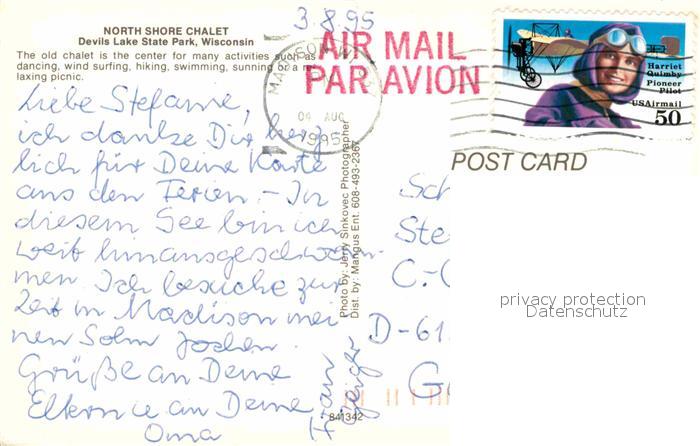 3.8.95
NORTH SHORE CHALET
Devils Lake State Park, Wisconsin
The old chalet is the center for many activities such as
dancing, wind surfing, hiking, swimming, sunning or a re-
laxing picnic.
AIR MAIL
PAR AVION
MADISON
04 AUG
1995
Harriet
Quimby
Pioneer
Pilot
USAirmail
50
POST CARD
Liebe Stefanie,
ich danke Dir herz
lich für Deine Karte
aus den Ferien. - In
diesem See bin ich
weit hinausgeschwom-
men. Ich besuche zur
Zeit in Madison mei
nen Sohn Jochen.
Grüße an Deine
Eltern u. e an Deine
Oma
Frau
Photo by: Jerry Sinkovec Photographer
Dist. by: Mangus Ent. 608-493-2367
Sch
Ste
C.-
D-61
G
841342
privacy protection
Datenschutz